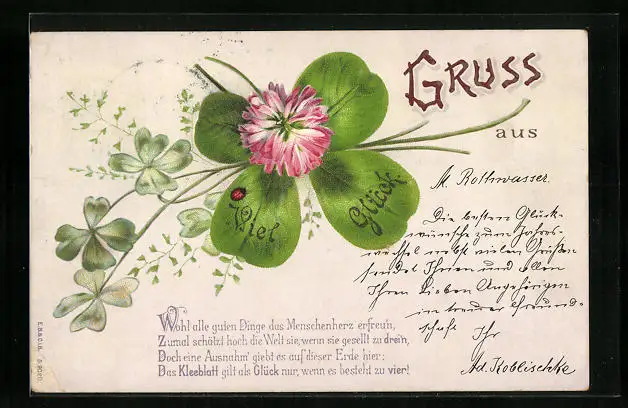 GRUSS
aus
M. Rothwasser.
Viel
Glück
Die besten Glück-
wünsche zum Jahres-
wechsel nebst vielen Grüßen
sendet Ihnen und allen
Ihren Lieben Angehörigen
in treuer Freund-
schaft Ihr
Ad. Koblischke
Wohl alle guten Dinge das Menschenherz erfreu'n,
Zumal schätzt hoch die Welt sie, wenn sie gesellt zu drei'n,
Doch eine Ausnahm' giebt es auf dieser Erde hier:
Das Kleeblatt gilt als Glück nur, wenn es besteht zu vier!